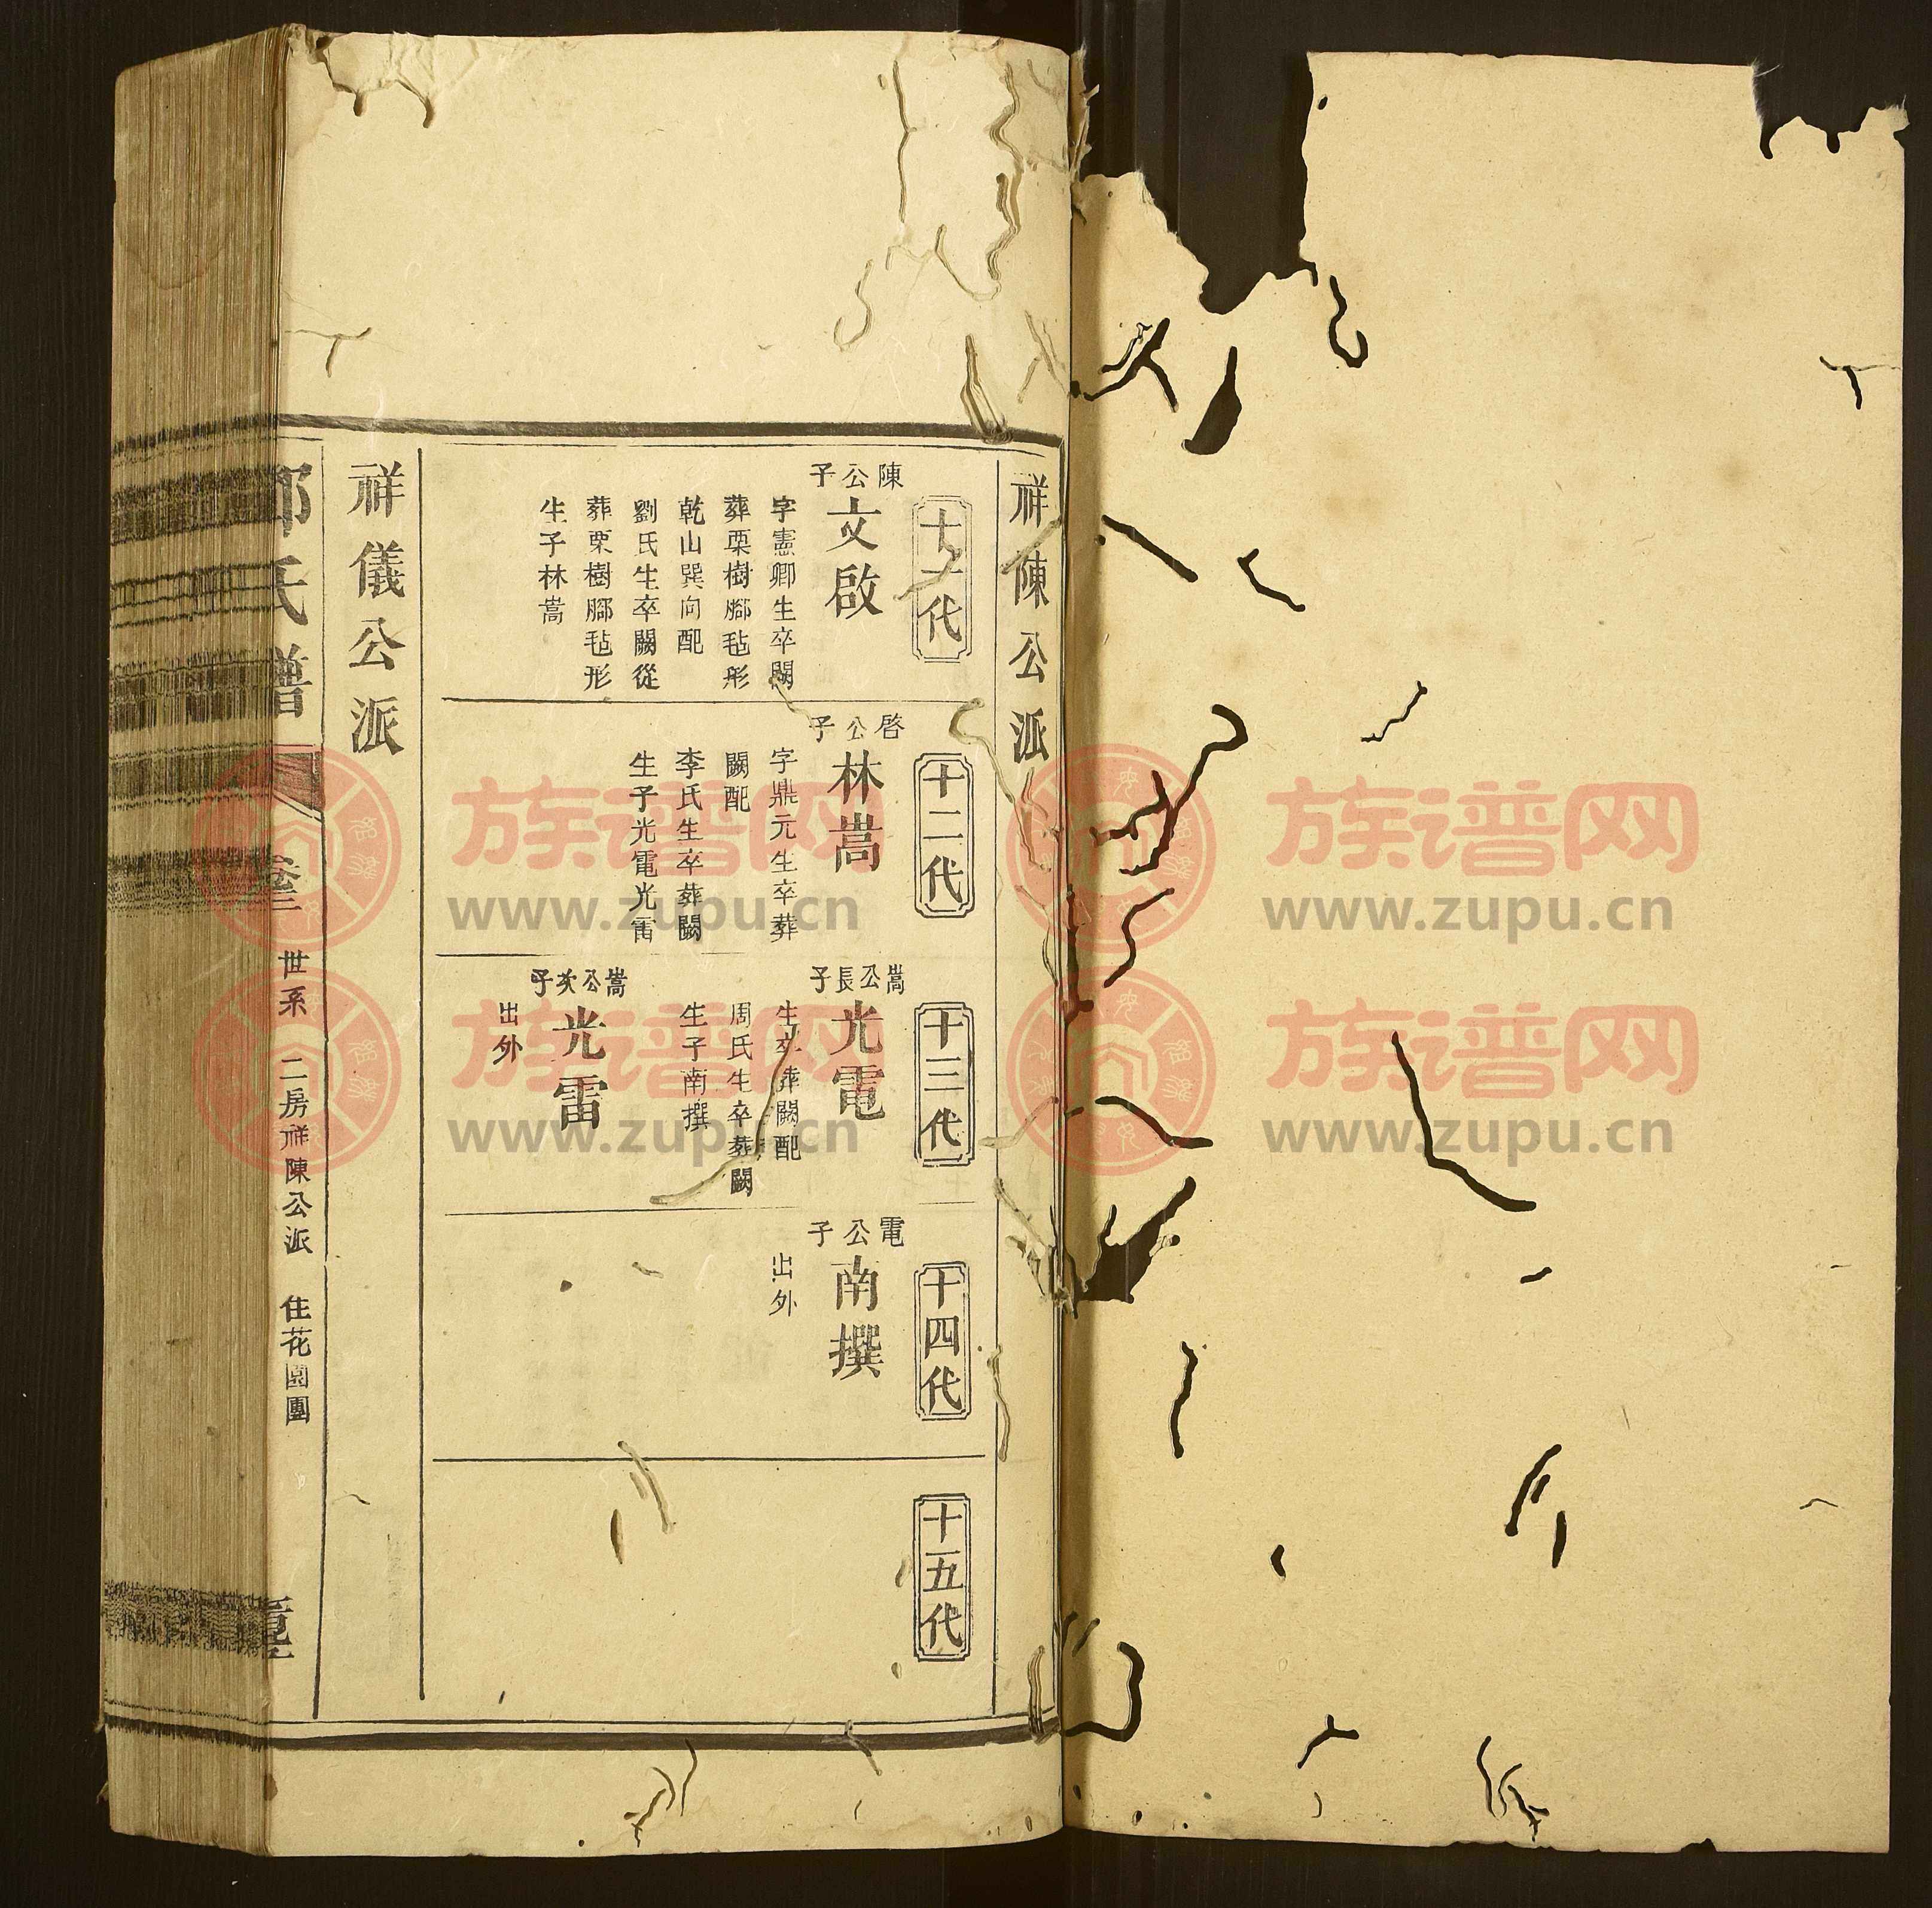 祥陳公派
十一代
陳公子
文啟
字憲卿生卒闕
葬栗樹腳毡形
乾山巽向配
劉氏生卒闕從
葬栗樹腳毡形
生子林嵩
十二代
啓公子
林嵩
字鼎元生卒葬
闕配
李氏生卒葬闕
生子光電光雷
十三代
嵩公長子
光電
生卒葬闕配
周氏生卒葬闕
生子南撰
嵩公次子
光雷
出外
十四代
電公子
南撰
出外
十五代
祥儀公派
氏譜
卷三
世系
二房祥陳公派
住花園團
族谱网
www.zupu.cn
族谱网
www.zupu.cn
族谱网
www.zupu.cn
族谱网
www.zupu.cn